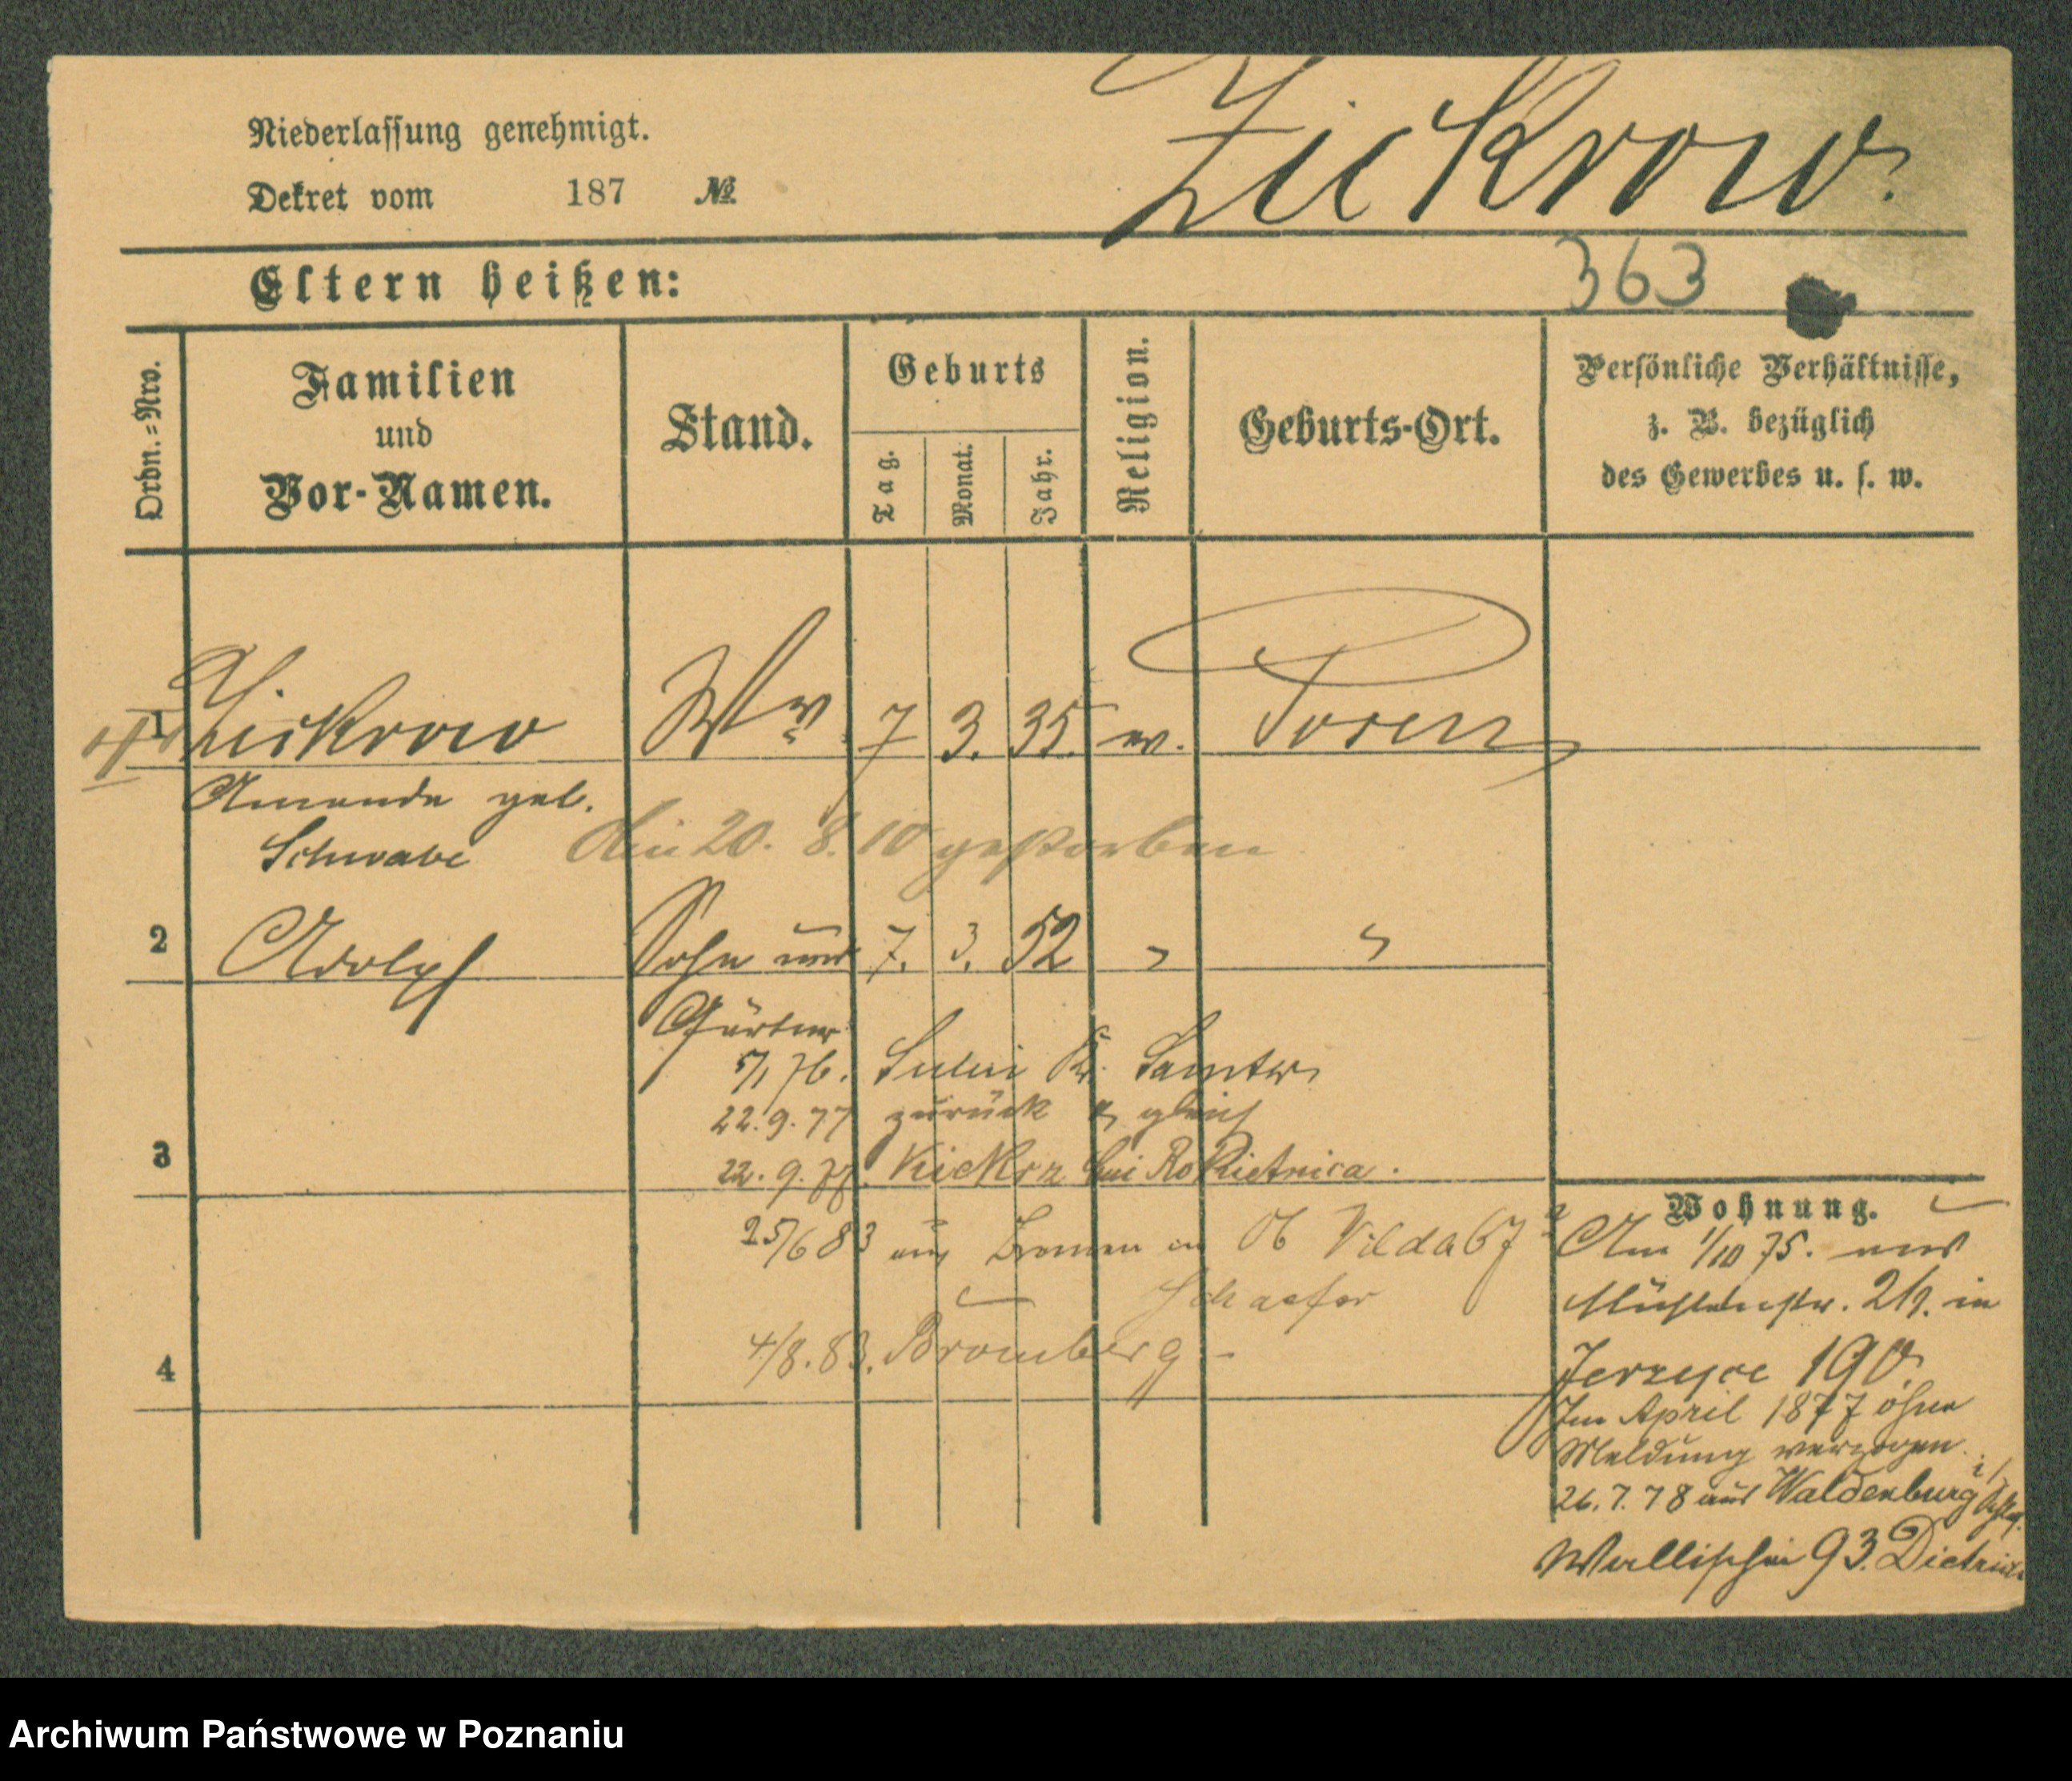 Niederlassung genehmigt.
Zickrow.
Dekret vom 187 №
Eltern heißen:
363
Ordn.=Nro.
Familien
und
Vor-Namen.
Stand.
Geburts
Tag.
Monat.
Jahr.
Religion.
Geburts-Ort.
Persönliche Verhältnisse,
z. B. bezüglich
des Gewerbes u. s. w.
1 Zickrow Ww 7 3. 35. ev. Posen
Amanda geb.
Schwabe
den 20. 8. 10 gestorben
2 Adolph Sohn 7. 3. 52 " "
Gärtner
5/1 76. Kr. Samter
22.9.77 zurück & gleich
3 22.9.77. Kiekrz bei Rokietnica.
25/6 83 aus Vilda 67
Schaefer
4/8.83. Bromberg
4
Wohnung.
Am 1/10 75. aus
Mühlenstr. in
Jerzyce 190
Im April 1877 ohne
Meldung verzogen.
26.7.78 aus Waldenburg i/Schles.
Wallischei 93. Dietrich
Archiwum Państwowe w Poznaniu